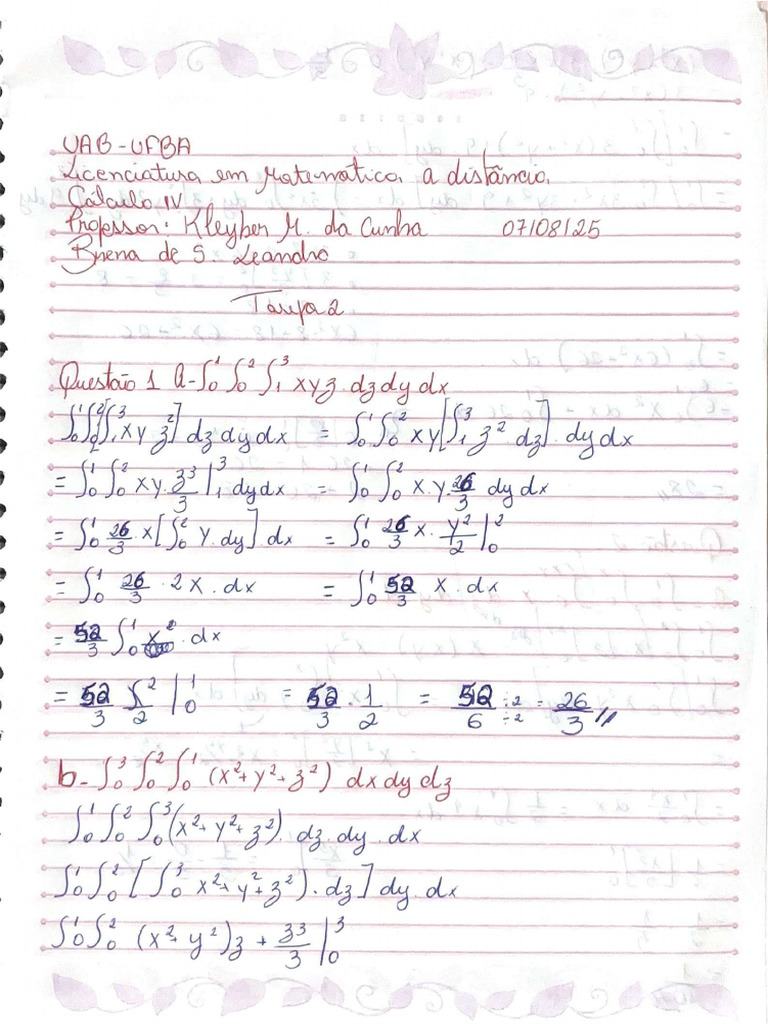 UAB-UFBA
Licenciatura em Matematica a distância
Cálculo IV
Professor: Kleyber M. da Cunha 07108125
Brena de S. Leandro
Tarefa 2
Questão 1 a-∫₀¹ ∫₀² ∫₁³ xyz·dzdydx
∫₀¹∫₀²[∫₁³ xy z²] dz dydx = ∫₀¹ ∫₀² xy[∫₁³ z²·dz]·dydx
= ∫₀¹ ∫₀² xy·z³/3 |₁³ dydx = ∫₀¹ ∫₀² x·y·26/3 dydx
= ∫₀¹ 26/3·x[∫₀² y·dy] dx = ∫₀¹ 26/3 x·y²/2 |₀²
= ∫₀¹ 26/3 · 2x·dx = ∫₀¹ 52/3 x·dx
= 52/3 ∫₀¹ x²·dx
= 52/3 x²/2 |₀¹ = 52/3 · 1/2 = 52/6 ÷2/÷2 = 26/3 //
b-∫₀³ ∫₀² ∫₀¹ (x²+y²+z²) dxdydz
∫₀¹ ∫₀² ∫₀³(x²+y²+z²)·dz·dy·dx
∫₀¹ ∫₀² [∫₀³ x²+y²+z²)·dz] dy·dx
∫₀¹∫₀² (x²+y²)z + z³/3 |₀³